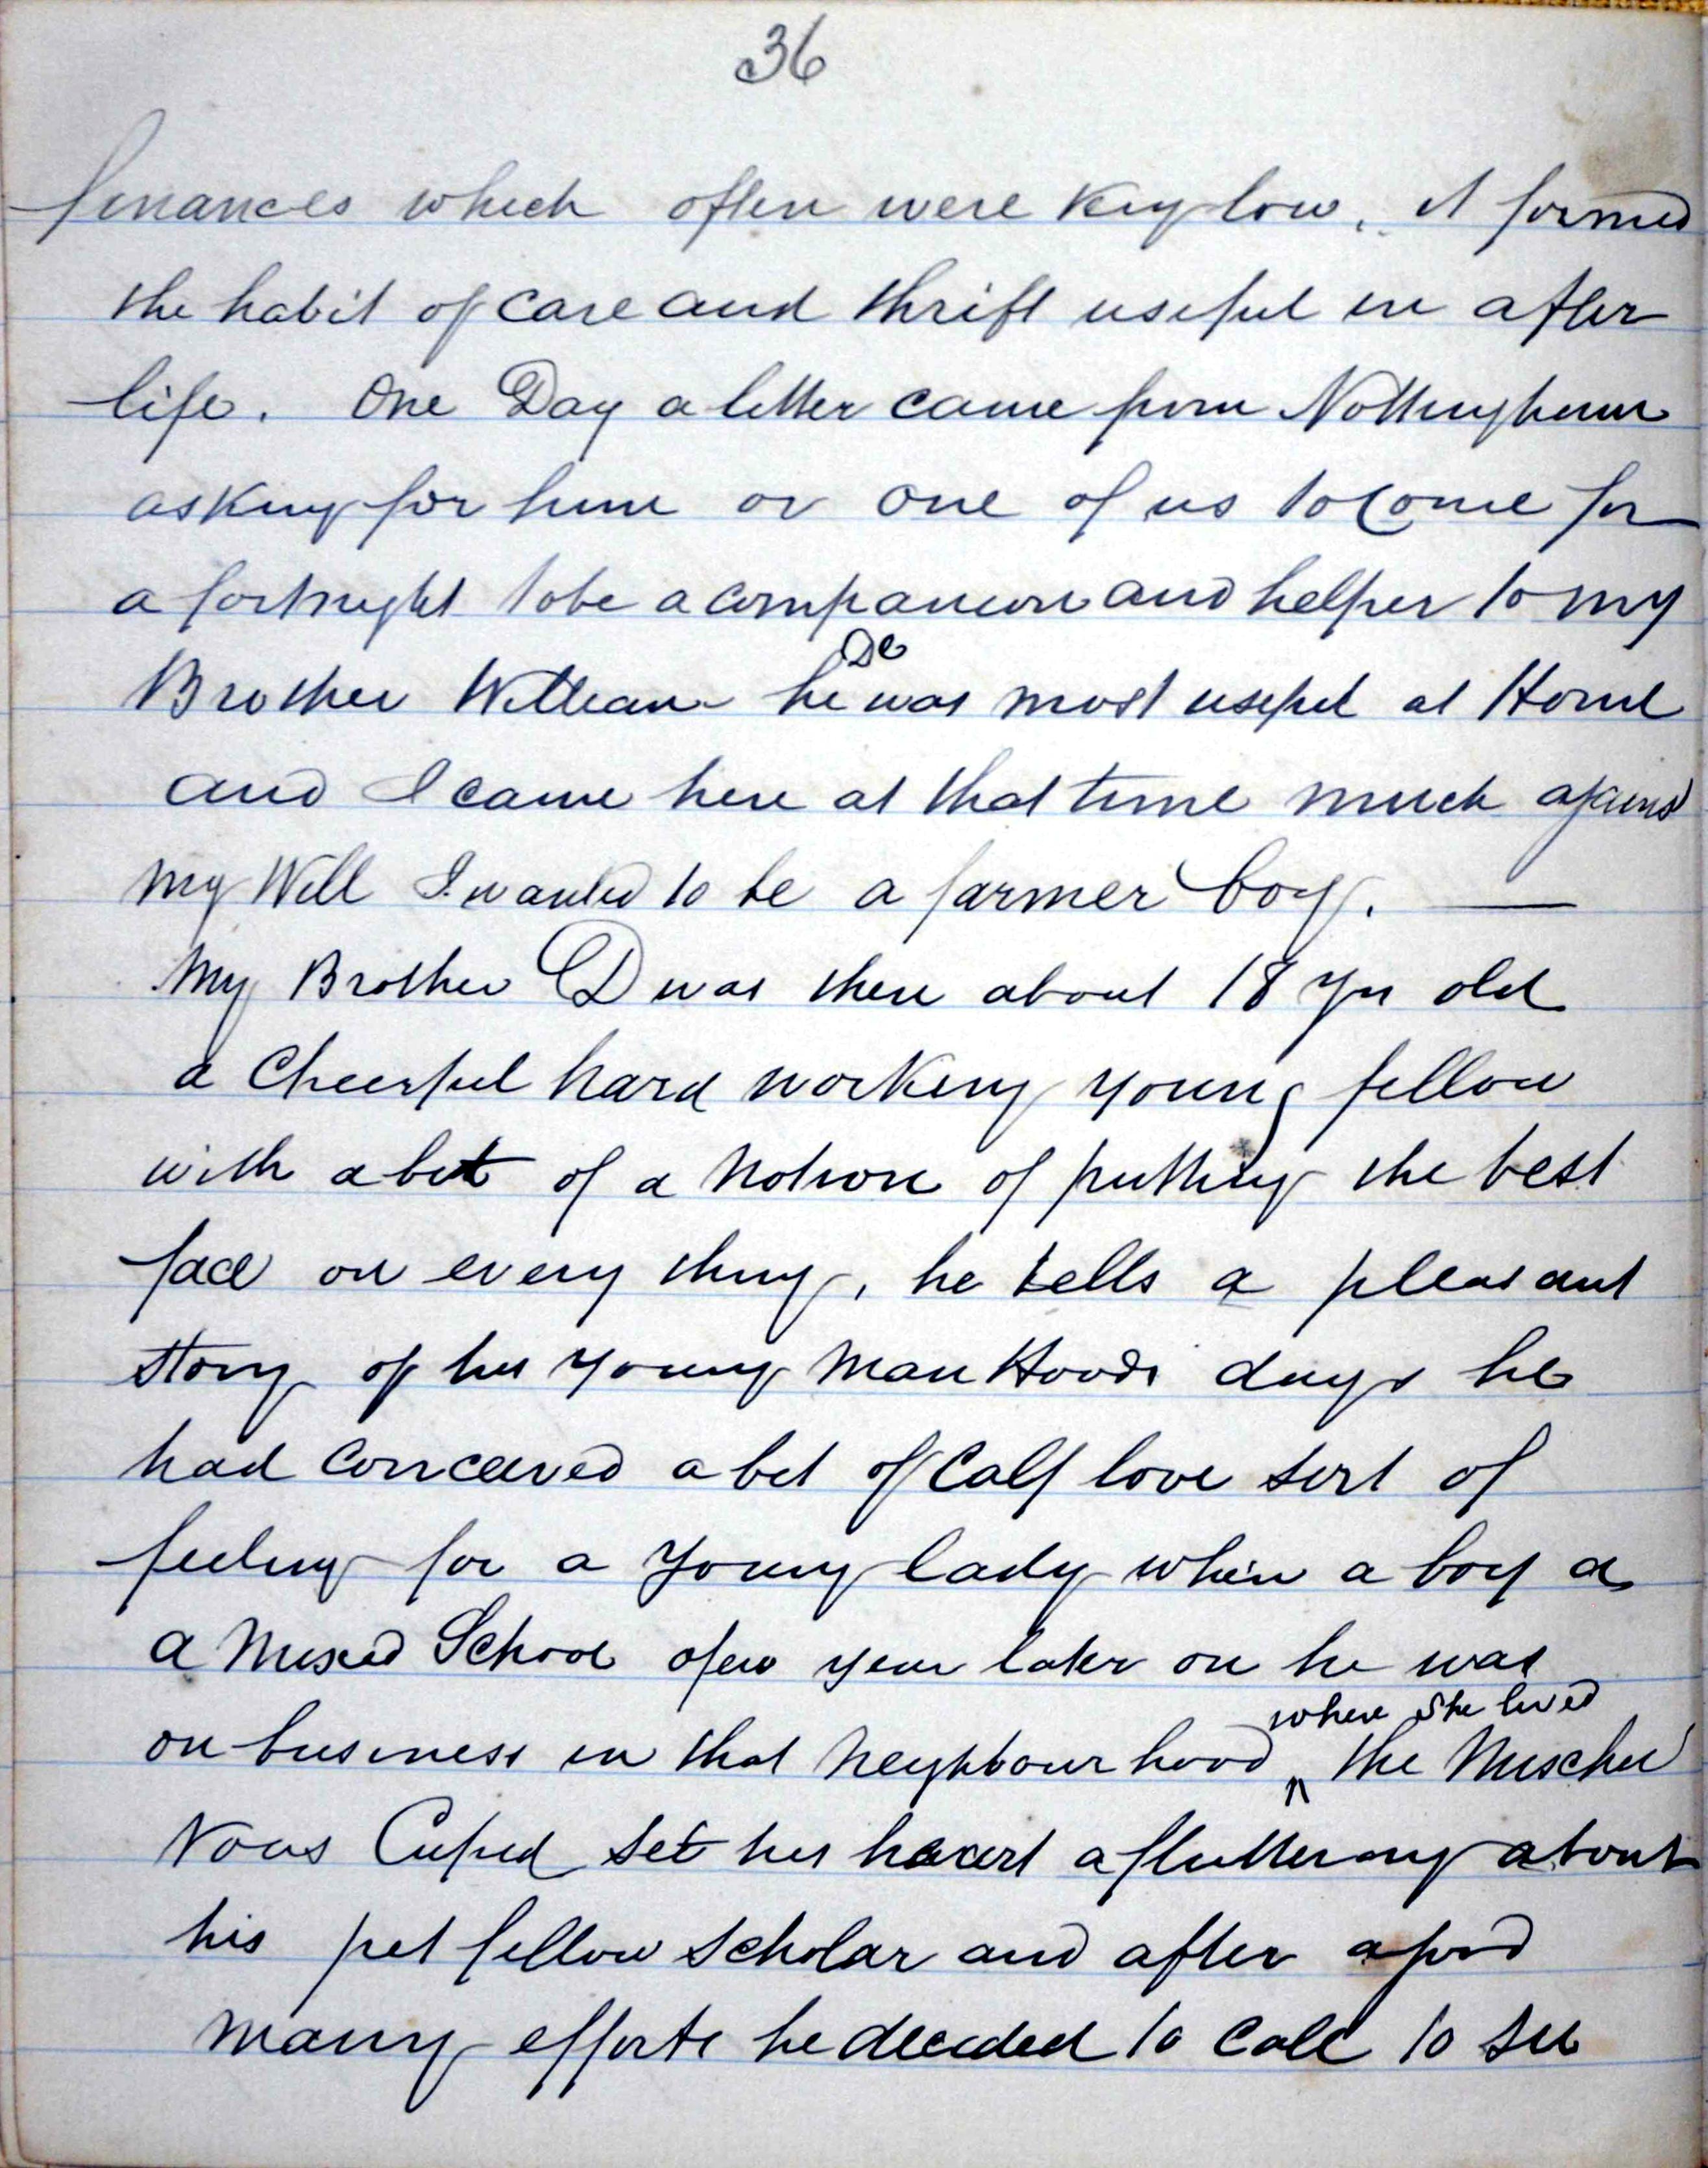 36
finances which often were very low, it formed
the habit of care and thrift useful in after
life. One Day a letter came from Nottingham
asking for him or one of us to come for
a fortnight to be a companion and helper to my
De
Brother William he was most useful at Home
and I came here at that time much against
my Will I wanted to be a farmer boy. —
My Brother D was then about 18 yrs old
a Cheerful hard working young fellow
with a bit of a notion of putting the best
face on every thing, he tells a pleasant
story of his young Man Hoods days he
had conceived a bit of Calf love sort of
feeling for a young lady when a boy at
a Mixed School a few year later on he was
where she lived
on business in that neighbourhood ^ the Mischei
vous Cupid set his heart a fluttering about
his pet fellow scholar and after a good
many efforts he decided to call to see